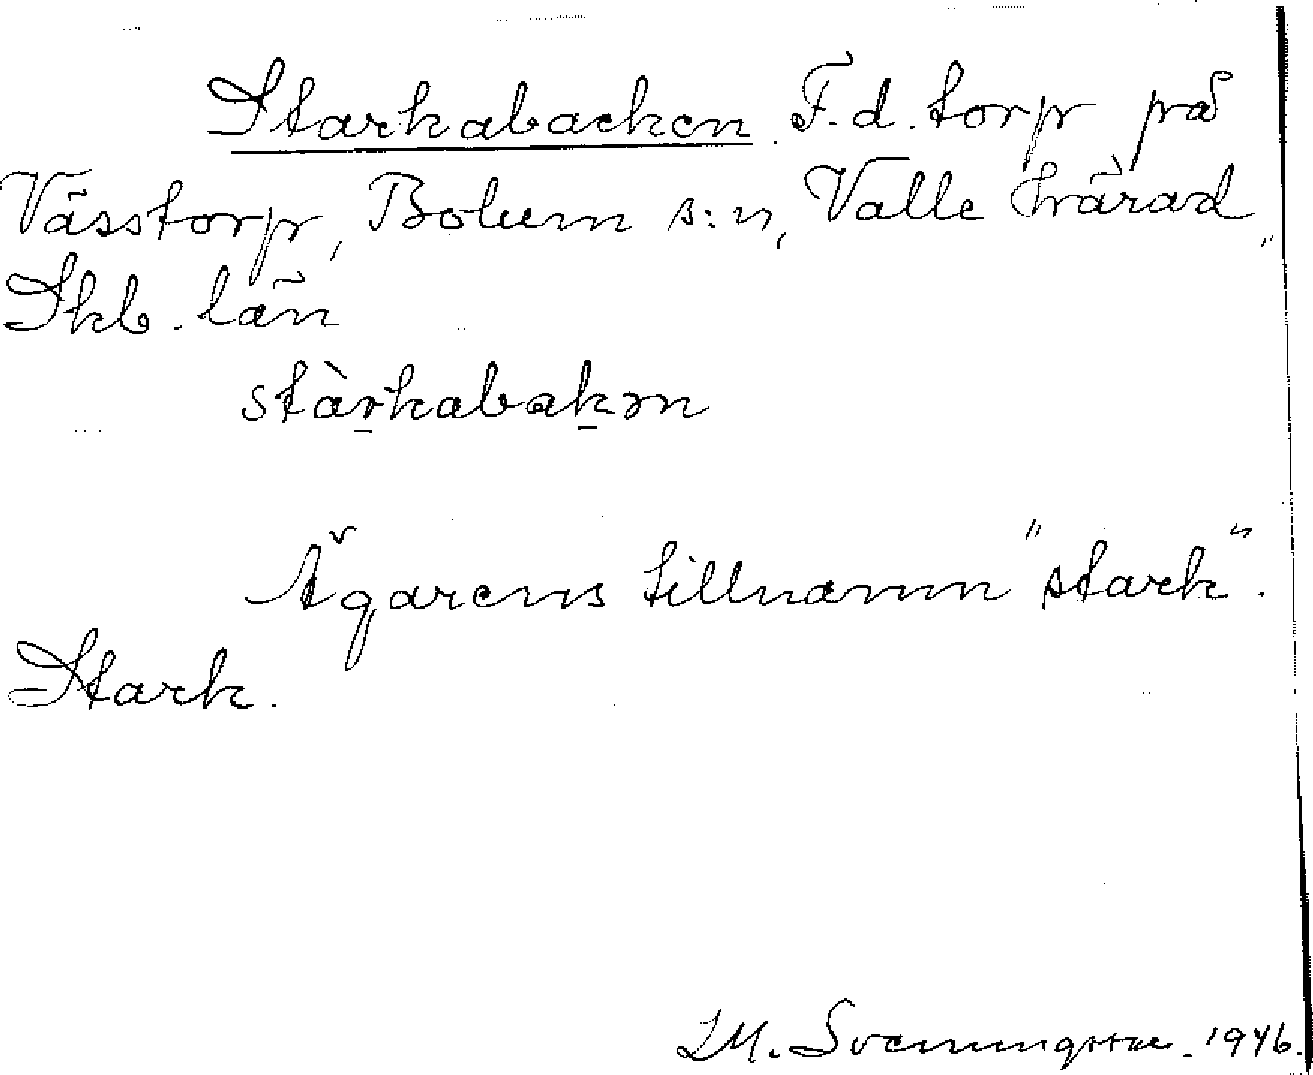 Starkabacken. F.d. torp på
Västorp, Bolum s:n, Valle härad,
Skb. län
stàr̠kabak̠ən
Ägarens tillnamn "stark".
Stark.
M. Svenningsson. 1946.